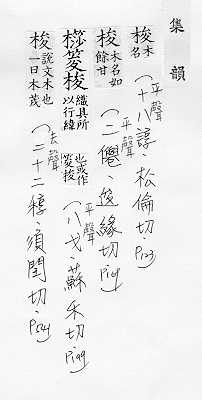 集韻
梭 木名 (平聲 十八諄．松倫切．P123)
梭 木名如餘甘 (平聲 二僊．逡緣切．P169)
梭 織具所以行緯也或作梭 (平聲 八戈．蘇禾切．P199)
梭 說文木也一曰木茂 (去聲 二十二稕．須閏切．P541)